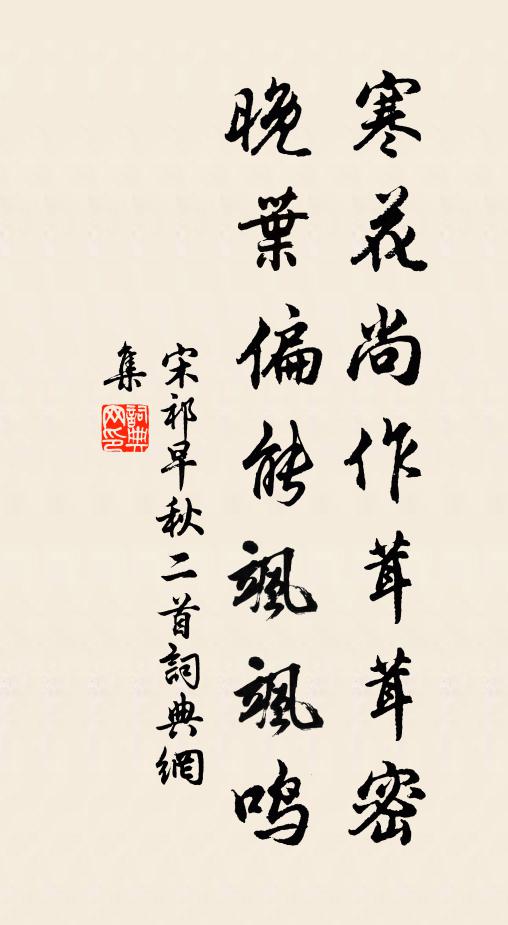 寒花尚作茸茸密
晚葉偏能颯颯鸣
宋祁早秋二首詞典網
集
詞典网印